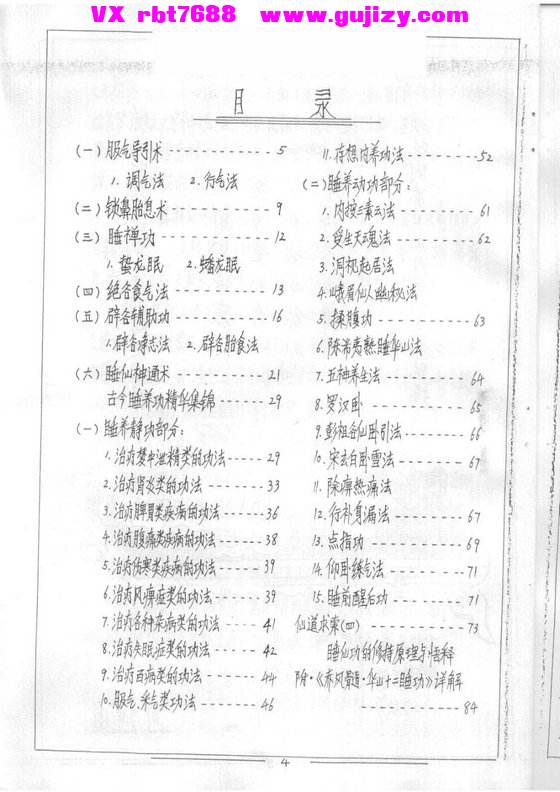 VX rbt7688 www.gujizy.com
目 录
(一)服气导引术 ---------- 5
1. 调气法 2. 行气法
(二)锁鼻胎息术 ---------- 9
(三)睡禅功 ---------- 12
1. 蛰龙眠 2. 蟠龙眠
(四)绝谷食气法 ---------- 13
(五)辟谷辅助功 ---------- 16
1. 辟谷净志法 2. 辟谷胎食法
(六)睡仙神通术 ---------- 21
古今睡养功精华集锦 ---------- 29
(一)睡养静功部分:
1. 治疗梦中泄精类的功法 ------ 29
2. 治疗肾炎类的功法 -------- 33
3. 治疗脾胃类疾病的功法 ----- 36
4. 治疗腹痛类疾病的功法 ----- 38
5. 治疗伤寒类疾病的功法 ----- 39
6. 治疗风痹症类的功法 ------ 39
7. 治疗各种杂病类的功法 ----- 41
8. 治疗失眠症类的功法 ------ 42
9. 治疗百病类的功法 ------- 44
10. 服气、采气类功法 ------- 46
11. 存想内养功法 --------- 52
(二)睡养动功部分:
1. 内按三素云法 --------- 61
2. 受生天魂法 ---------- 62
3. 洞视起居法
4. 峨眉仙人幽秘法
5. 揉腹功 ---------- 63
6. 陈希夷熟睡华山法
7. 五种养生法 --------- 64
8. 罗汉卧 ---------- 65
9. 彭祖谷仙卧引法 ------- 66
10. 宋玄白卧雪法 ------- 67
11. 除痹热痛法
12. 行补身漏法 -------- 67
13. 点指功 ---------- 69
14. 仰卧练气法 -------- 71
15. 睡前醒后功 -------- 71
仙道求索(四) --------- 73
睡仙功的修持原理与悟释
附·《赤风髓·华山十二睡功》详解
---------- 84
4